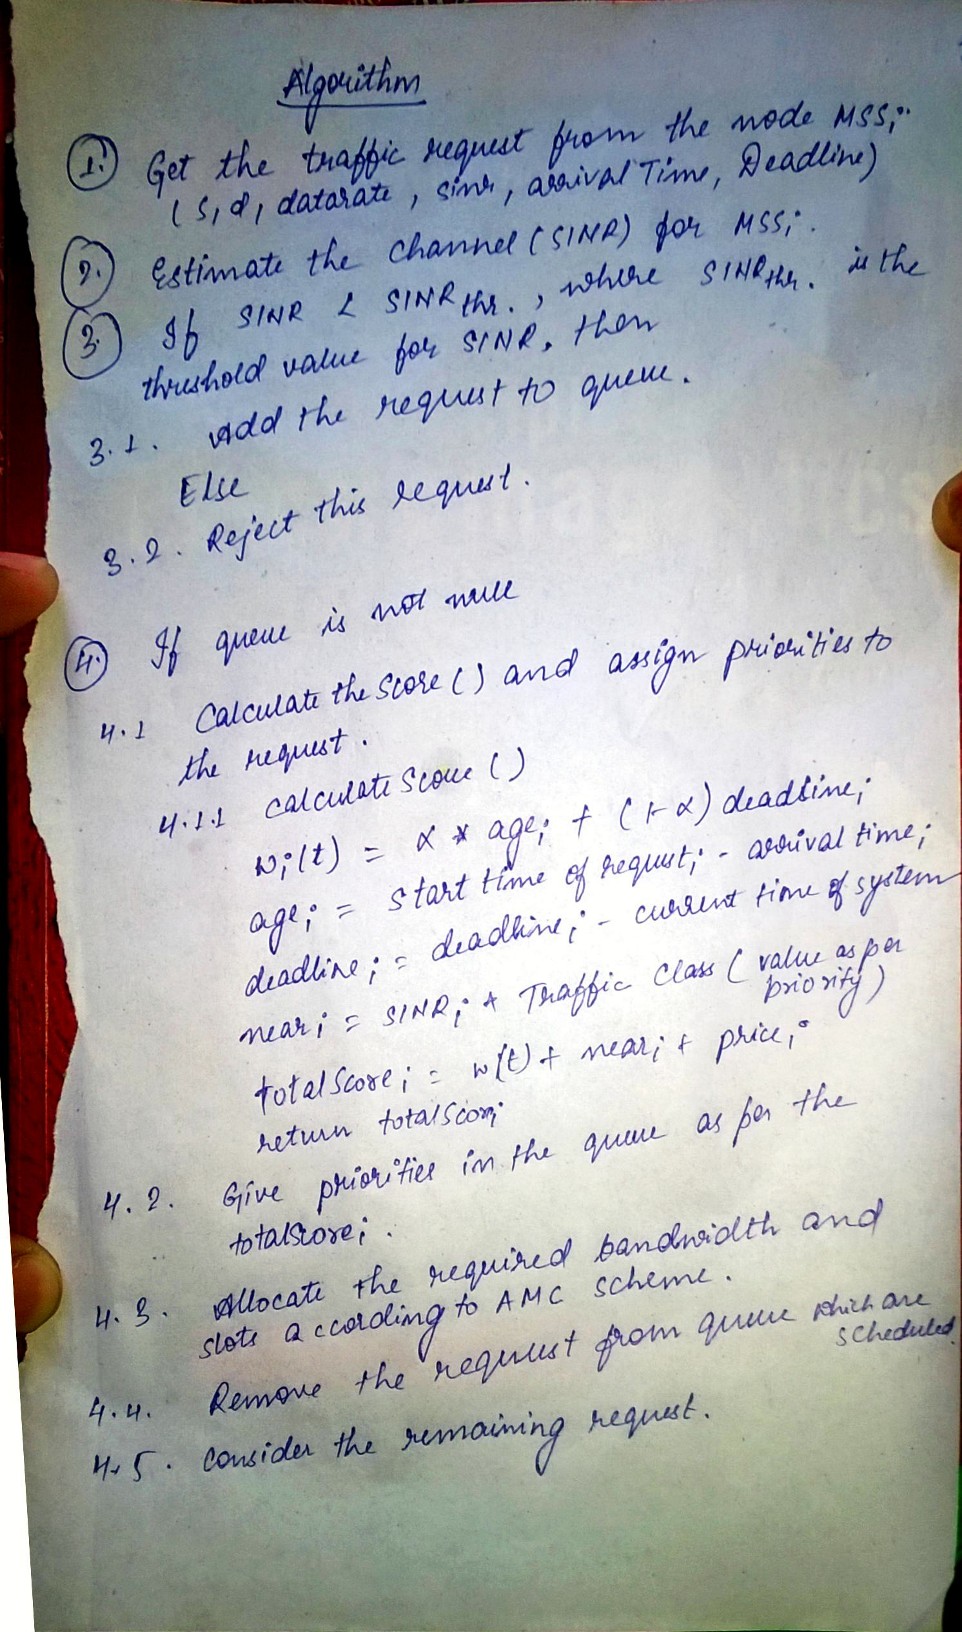 Algorithm
1. Get the traffic request from the node MSSi
(S, d, datarate, sinr, arrival Time, Deadline)
2. Estimate the channel (SINR) for MSSi.
3. If SINR < SINRthr., where SINRthr. is the
threshold value for SINR, then
3.1. Add the request to queue.
Else
3.2. Reject this request.
4. If queue is not null
4.1 Calculate the Score () and assign priorities to
the request.
4.1.1 Calculate Score ()
wi(t) = α * agei + (1-α) deadlinei
agei = start time of requesti - arrival timei
deadlinei = deadlinei - current time of system
neari = SINRi * Traffic Class (value as per
priority)
totalScorei = w(t) + neari + pricei
return totalScorei
4.2. Give priorities in the queue as per the
totalScorei.
4.3. Allocate the required bandwidth and
slots according to AMC scheme.
4.4. Remove the request from queue which are
scheduled.
4.5. Consider the remaining request.